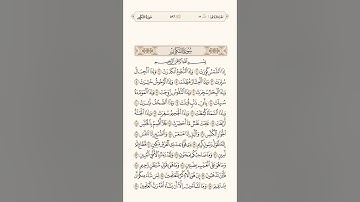 سورة التكوير
بسم الله الرحمن الرحيم
إذا الشمس كورت ۝ وإذا النجوم انكدرت ۝ وإذا الجبال
سيرت ۝ وإذا العشار عطلت ۝ وإذا الوحوش حشرت ۝
وإذا البحار سجرت ۝ وإذا النفوس زوجت ۝ وإذا الموءودة
سئلت ۝ بأي ذنب قتلت ۝ وإذا الصحف نشرت ۝
وإذا السماء كشطت ۝ وإذا الجحيم سعرت ۝ وإذا الجنة
أزلفت ۝ علمت نفس ما أحضرت ۝ فلا أقسم بالخنس ۝
الجوار الكنس ۝ والليل إذا عسعس ۝ والصبح إذا تنفس ۝
إنه لقول رسول كريم ۝ ذي قوة عند ذي العرش مكين ۝ مطاع ثم
أمين ۝ وما صاحبكم بمجنون ۝ ولقد رآه بالأفق المبين ۝
وما هو على الغيب بضنين ۝ وما هو بقول شيطان رجيم ۝
فأين تذهبون ۝ إن هو إلا ذكر للعالمين ۝ لمن شاء منكم أن
يستقيم ۝ وما تشاءون إلا أن يشاء الله رب العالمين ۝